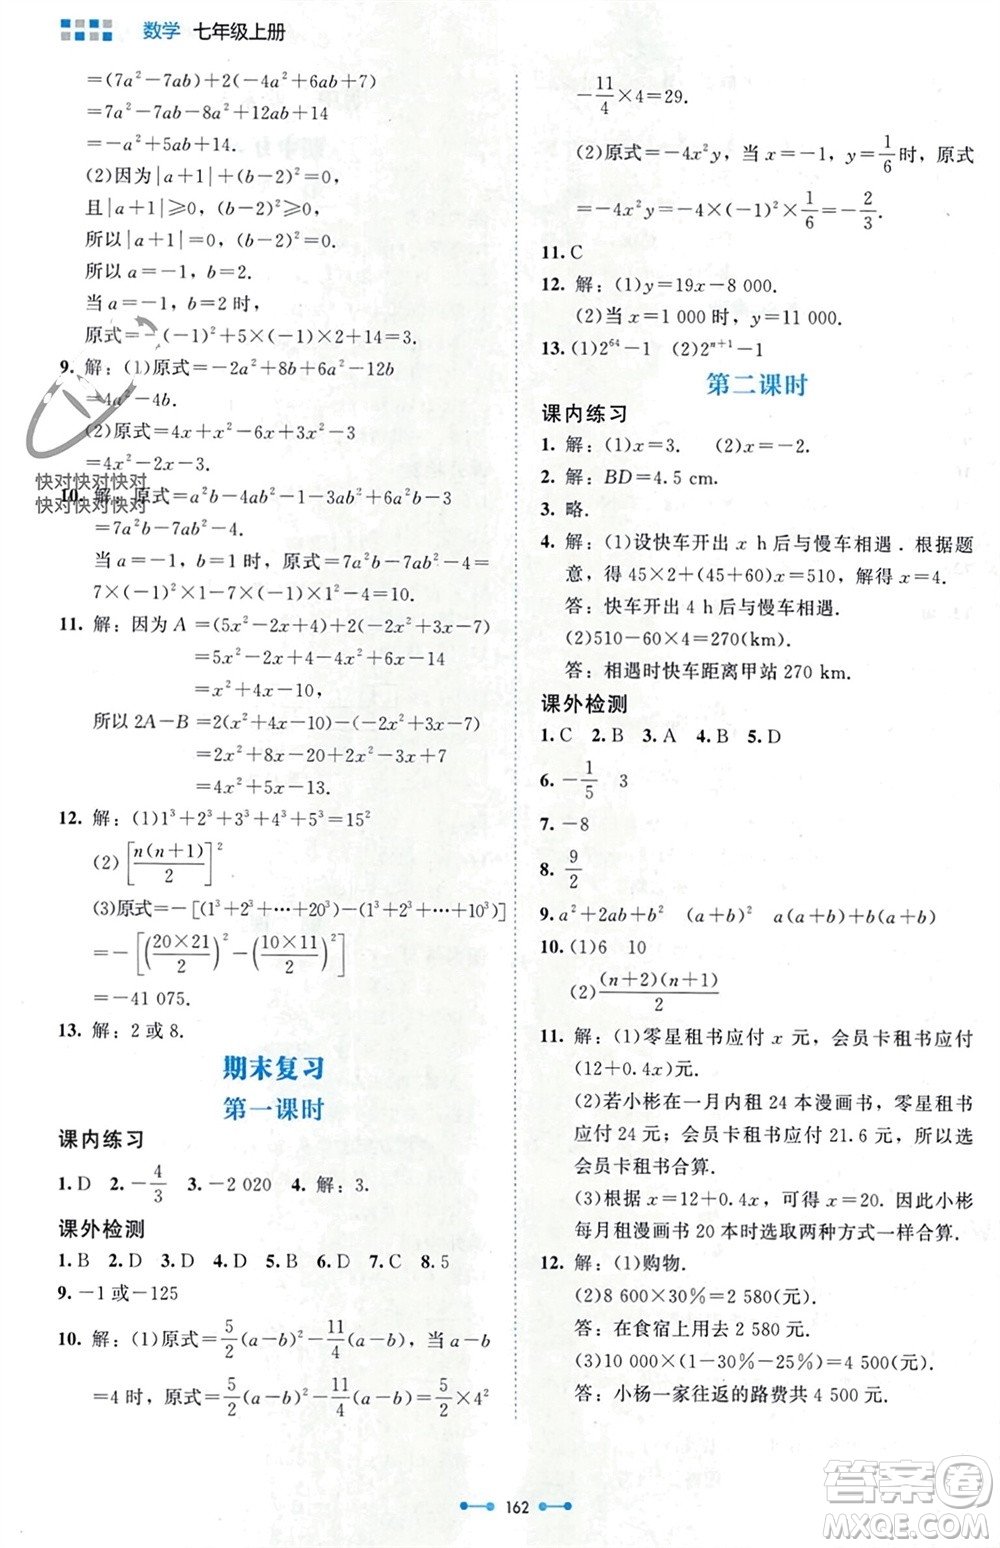 数学 七年级上册
=(7a²-7ab)+2(-4a²+6ab+7)
=7a²-7ab-8a²+12ab+14
=-a²+5ab+14.
(2)因为|a+1|+(b-2)²=0,
且|a+1|≥0,(b-2)²≥0,
所以|a+1|=0,(b-2)²=0.
所以a=-1,b=2.
当a=-1,b=2时,
原式=-(-1)²+5×(-1)×2+14=3.
9. 解:(1)原式=-2a²+8b+6a²-12b
=4a²-4b.
(2)原式=4x+x²-6x+3x²-3
=4x²-2x-3.
快对快对快对
快对快对快对
10. 解:原式=a²b-4ab²-1+8a²b-3ab²-3
=7a²b-7ab²-4.
当a=-1,b=1时,7a²b-7ab²-4=
7×(-1)²×1-7×(-1)×1²-4=10.
11. 解:因为A=(5x²-2x+4)+2(-2x²+3x-7)
=5x²-2x+4-4x²+6x-14
=x²+4x-10,
所以2A-B=2(x²+4x-10)-(-2x²+3x-7)
=2x²+8x-20+2x²-3x+7
=4x²+5x-13.
12. 解:(1)1³+2³+3³+4³+5³=15²
(2)[n(n+1)/2]²
(3)原式=-[(1³+2³+…+20³)-(1³+2³+…+10³)]
=-[(20×21/2)²-(10×11/2)²]
=-41 075.
13. 解:2或8.
期末复习
第一课时
课内练习
1. D 2. -4/3 3. -2 020 4. 解:3.
课外检测
1. B 2. D 3. D 4. B 5. B 6. D 7. C 8. 5
9. -1或-125
10. 解:(1)原式=5/2(a-b)²-11/4(a-b),当a-b
=4时,原式=5/2(a-b)²-11/4(a-b)=5/2×4²
-11/4×4=29.
(2)原式=-4x²y,当x=-1,y=1/6时,原式
=-4x²y=-4×(-1)²×1/6=-2/3.
11. C
12. 解:(1)y=19x-8 000.
(2)当x=1 000时,y=11 000.
13. (1)2⁶⁴-1 (2)2ⁿ⁺¹-1
第二课时
课内练习
1. 解:(1)x=3. (2)x=-2.
2. 解:BD=4.5 cm.
3. 略.
4. 解:(1)设快车开出x h后与慢车相遇.根据题
意,得45×2+(45+60)x=510,解得x=4.
答:快车开出4 h后与慢车相遇.
(2)510-60×4=270(km).
答:相遇时快车距离甲站270 km.
课外检测
1. C 2. B 3. A 4. B 5. D
6. -1/5 3
7. -8
8. 9/2
9. a²+2ab+b² (a+b)² a(a+b)+b(a+b)
10. (1)6 10
(2)(n+2)(n+1)/2
11. 解:(1)零星租书应付x元,会员卡租书应付
(12+0.4x)元.
(2)若小彬在一月内租24本漫画书,零星租书
应付24元;会员卡租书应付21.6元,所以选
会员卡租书合算.
(3)根据x=12+0.4x,可得x=20.因此小彬
每月租漫画书20本时选取两种方式一样合算.
12. 解:(1)购物.
(2)8 600×30%=2 580(元).
答:在食宿上用去2 580元.
(3)10 000×(1-30%-25%)=4 500(元).
答:小杨一家往返的路费共4 500元.
162
答案圈
MXQE.COM